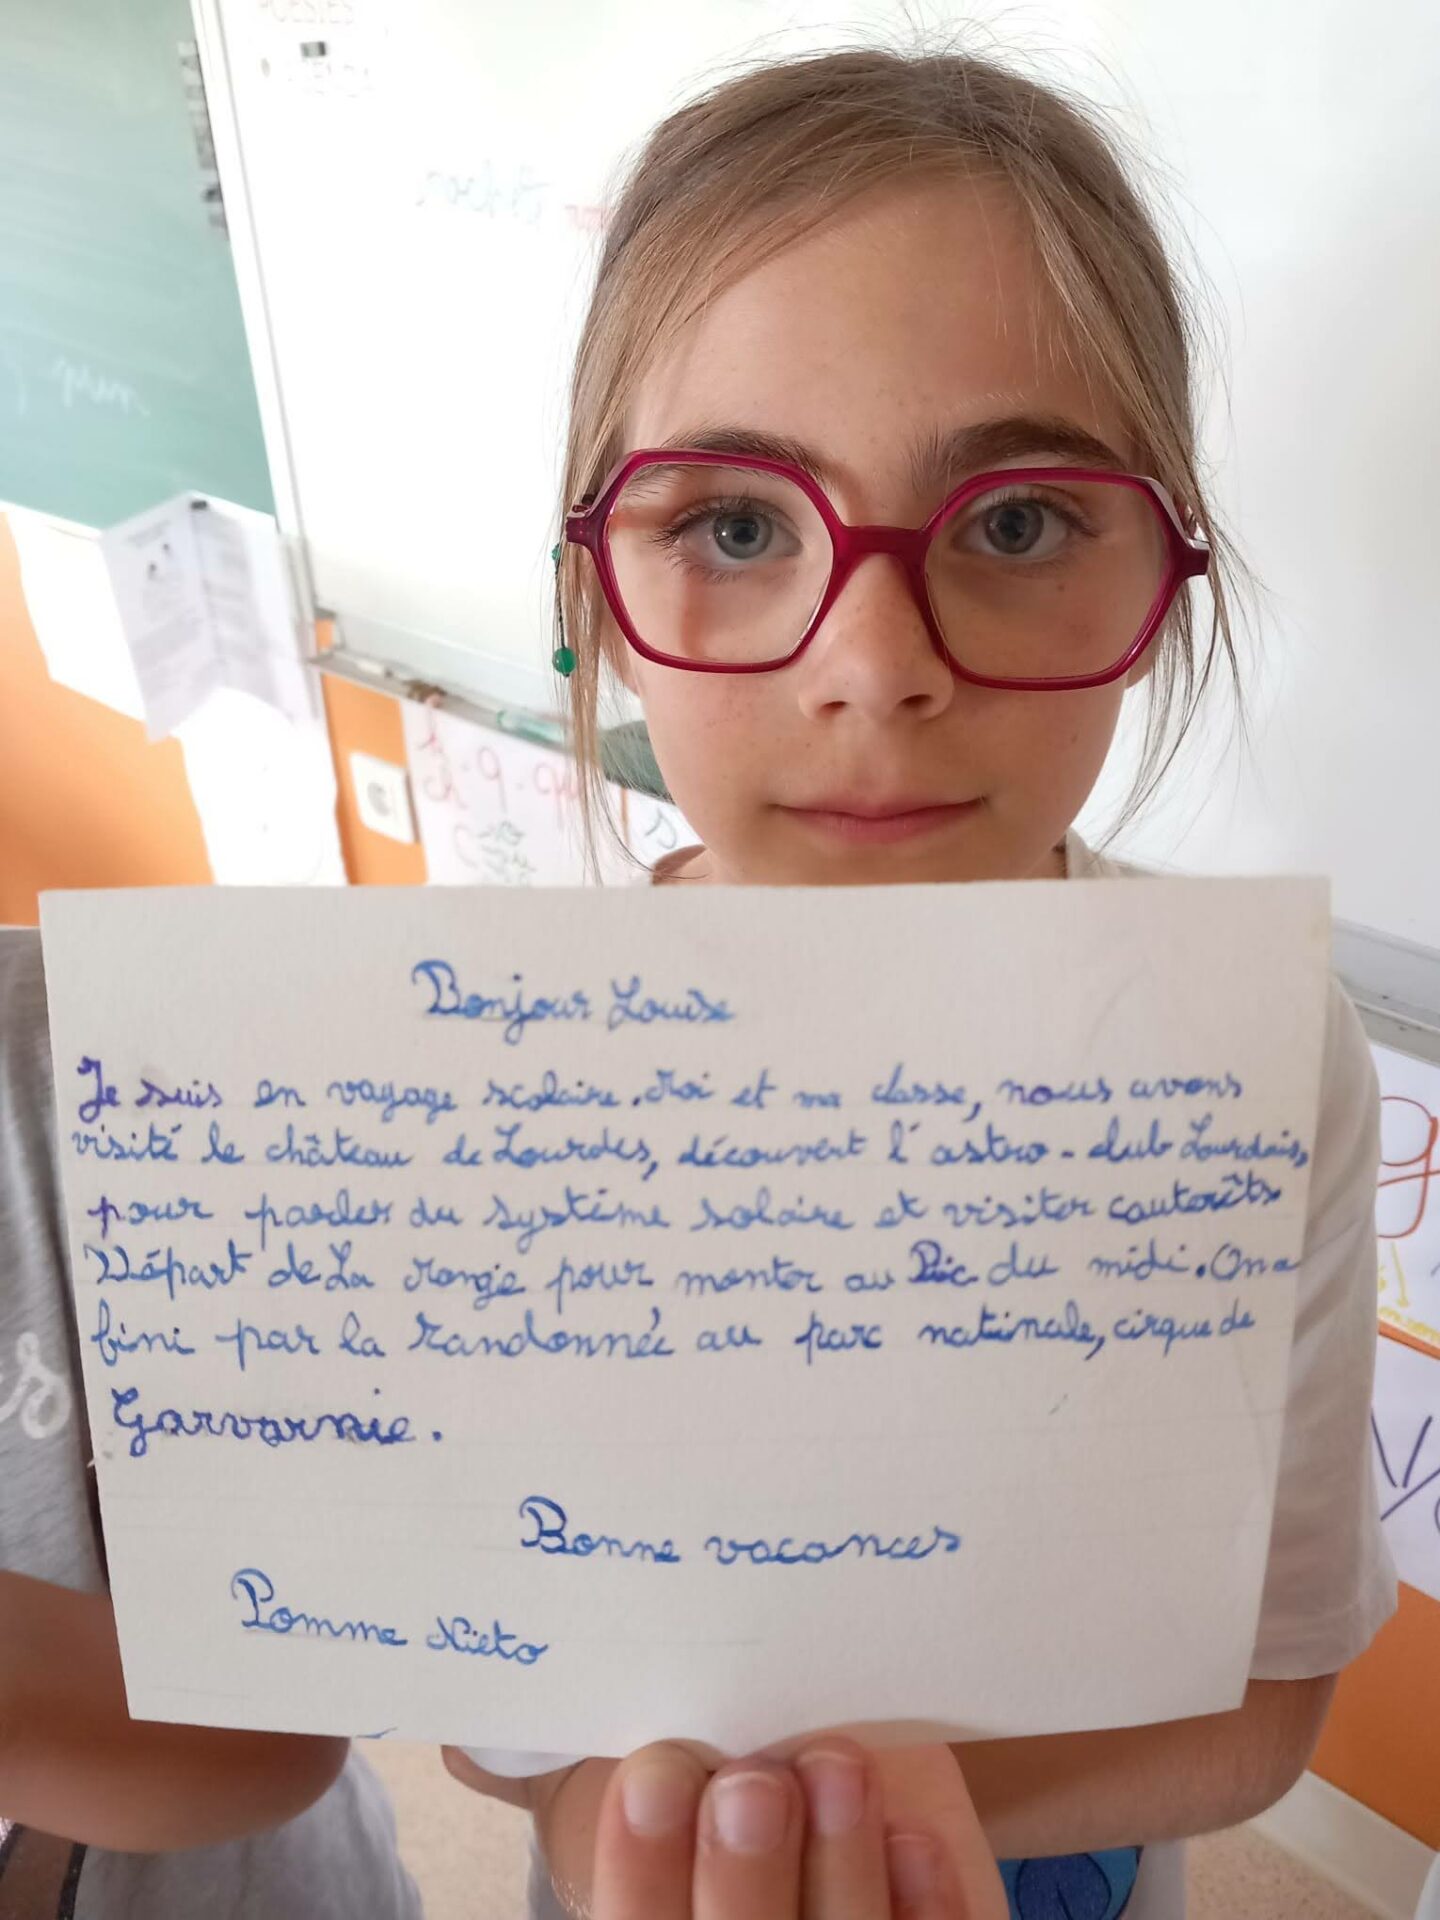 POÉSIES
Bonjour Louise
Je suis en voyage scolaire. Moi et ma classe, nous avons
visité le château de Lourdes, découvert l'astro-club Lourdais,
pour parler du système solaire et visiter cauterêts
Départ de La mongie pour monter au Pic du midi. On a
fini par la randonnée au parc nationale, cirque de
Garvarnie.
Bonne vacances
Pomme Nieto